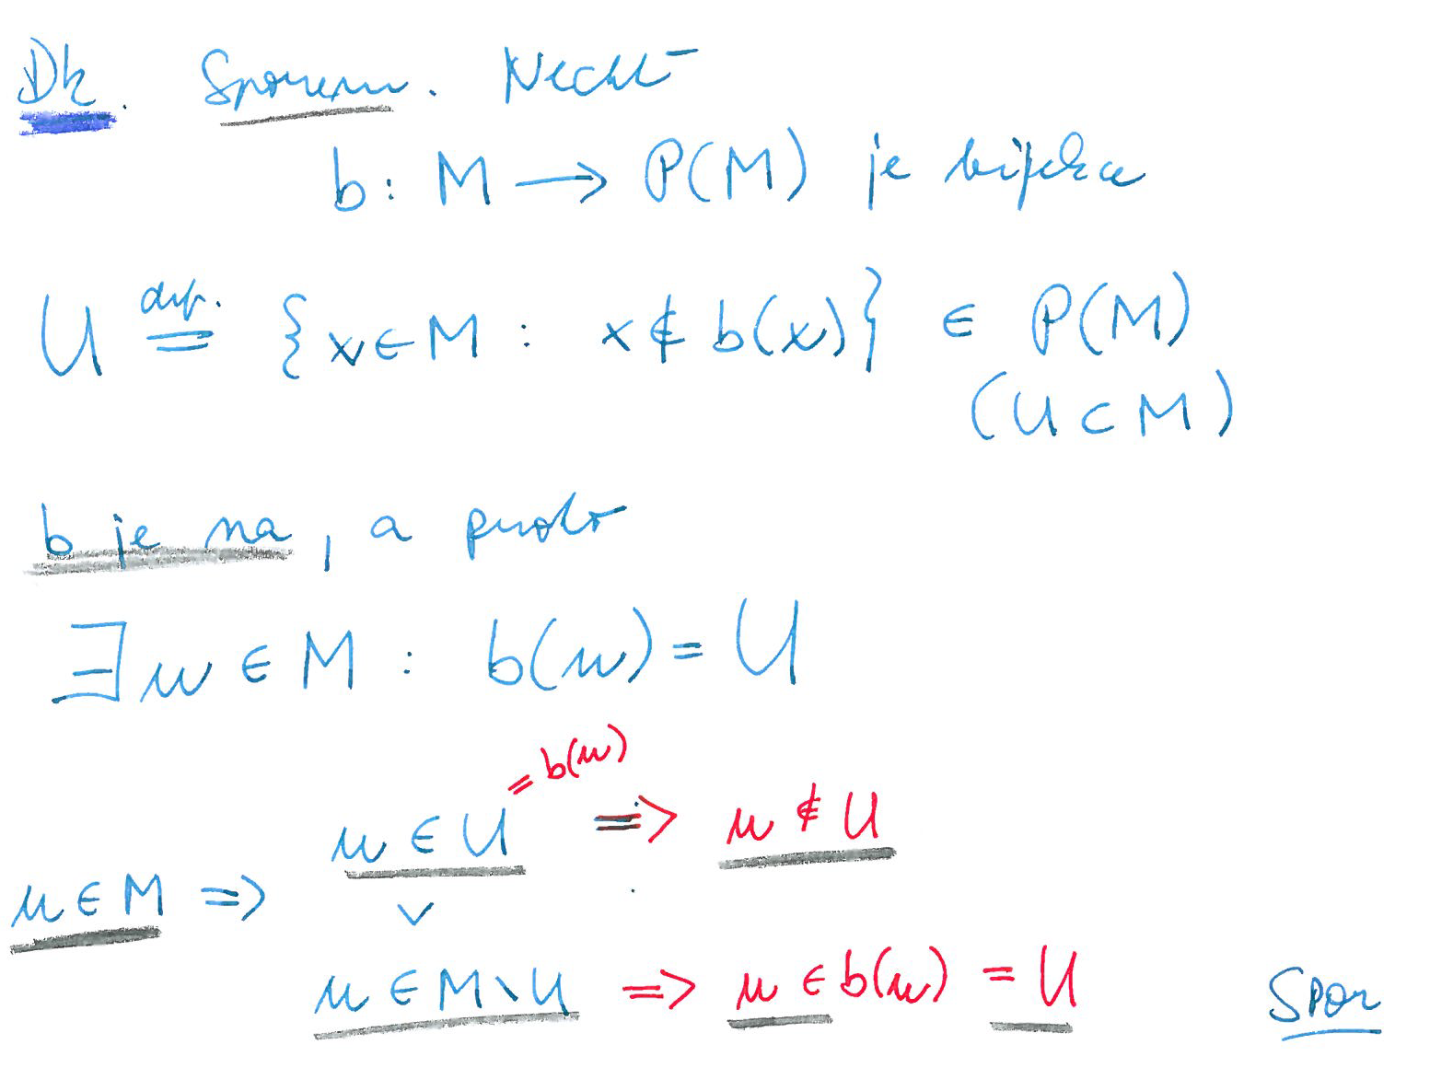 Dk. Sporem. Nechť
b: M → P(M) je bijekce
U def.= {x ∈ M : x ∉ b(x)} ∈ P(M)
(U ⊂ M)
b je na, a proto
∃ u ∈ M : b(u) = U
= b(u)
u ∈ U ⇒ u ∉ U
u ∈ M ⇒ ∨
u ∈ M \ U ⇒ u ∈ b(u) = U Spor